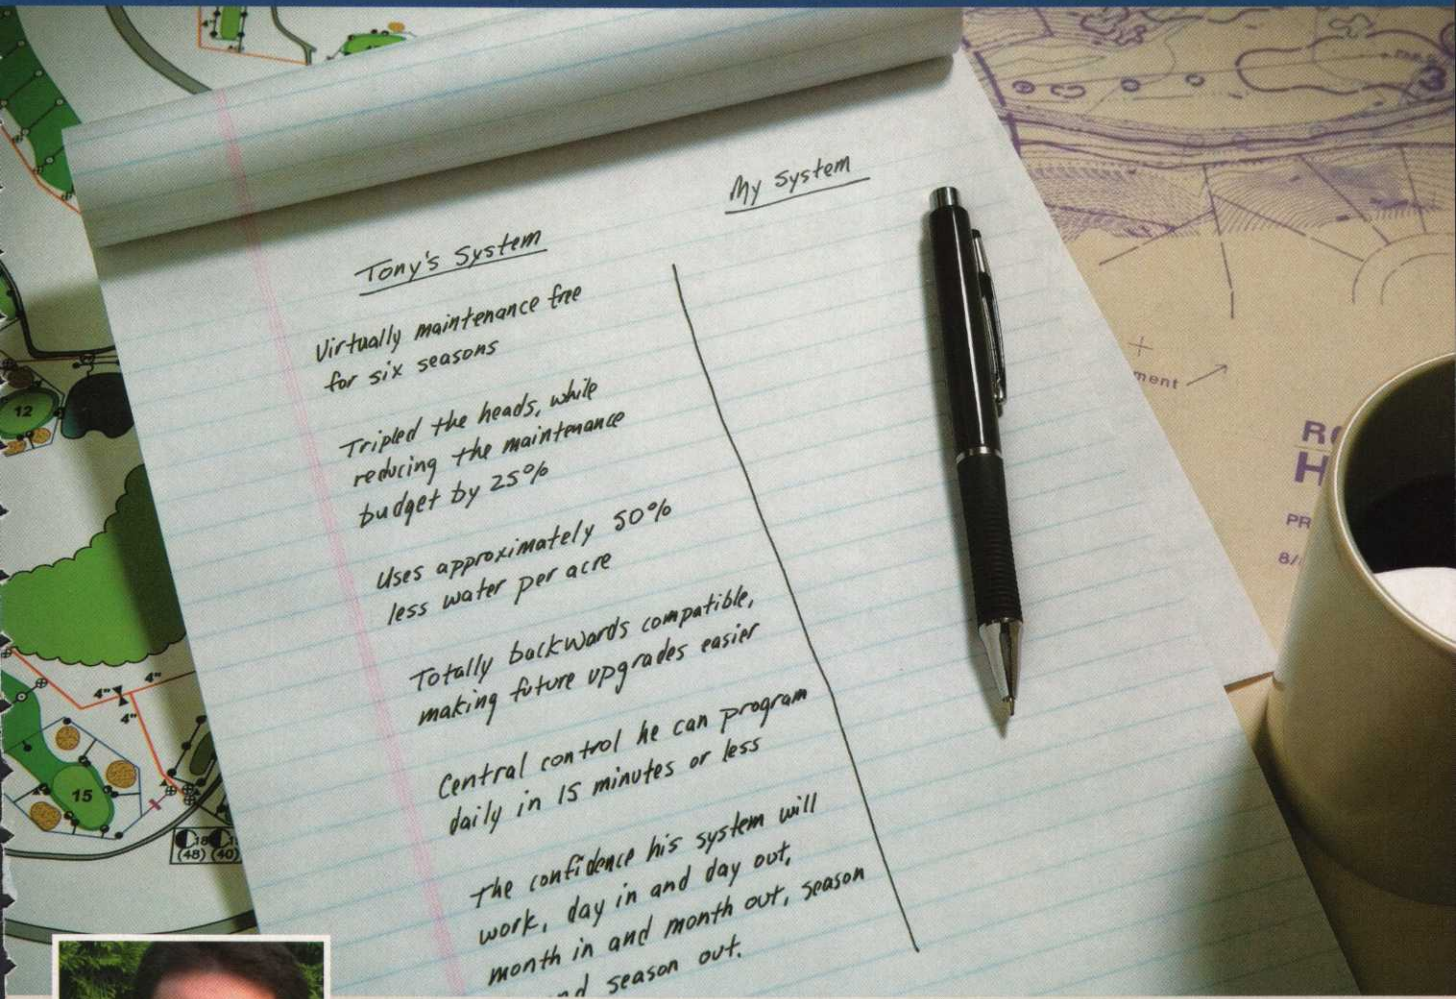 My System
Tony's System
Virtually maintenance free
for six seasons
Tripled the heads, while
reducing the maintenance
budget by 25%
Uses approximately 50%
less water per acre
Totally backwards compatible,
making future upgrades easier
Central control he can program
daily in 15 minutes or less
The confidence his system will
work, day in and day out,
month in and month out, season
season out.
12
15
4"
4"
4"
(48) (40)
3
H
PR
8/